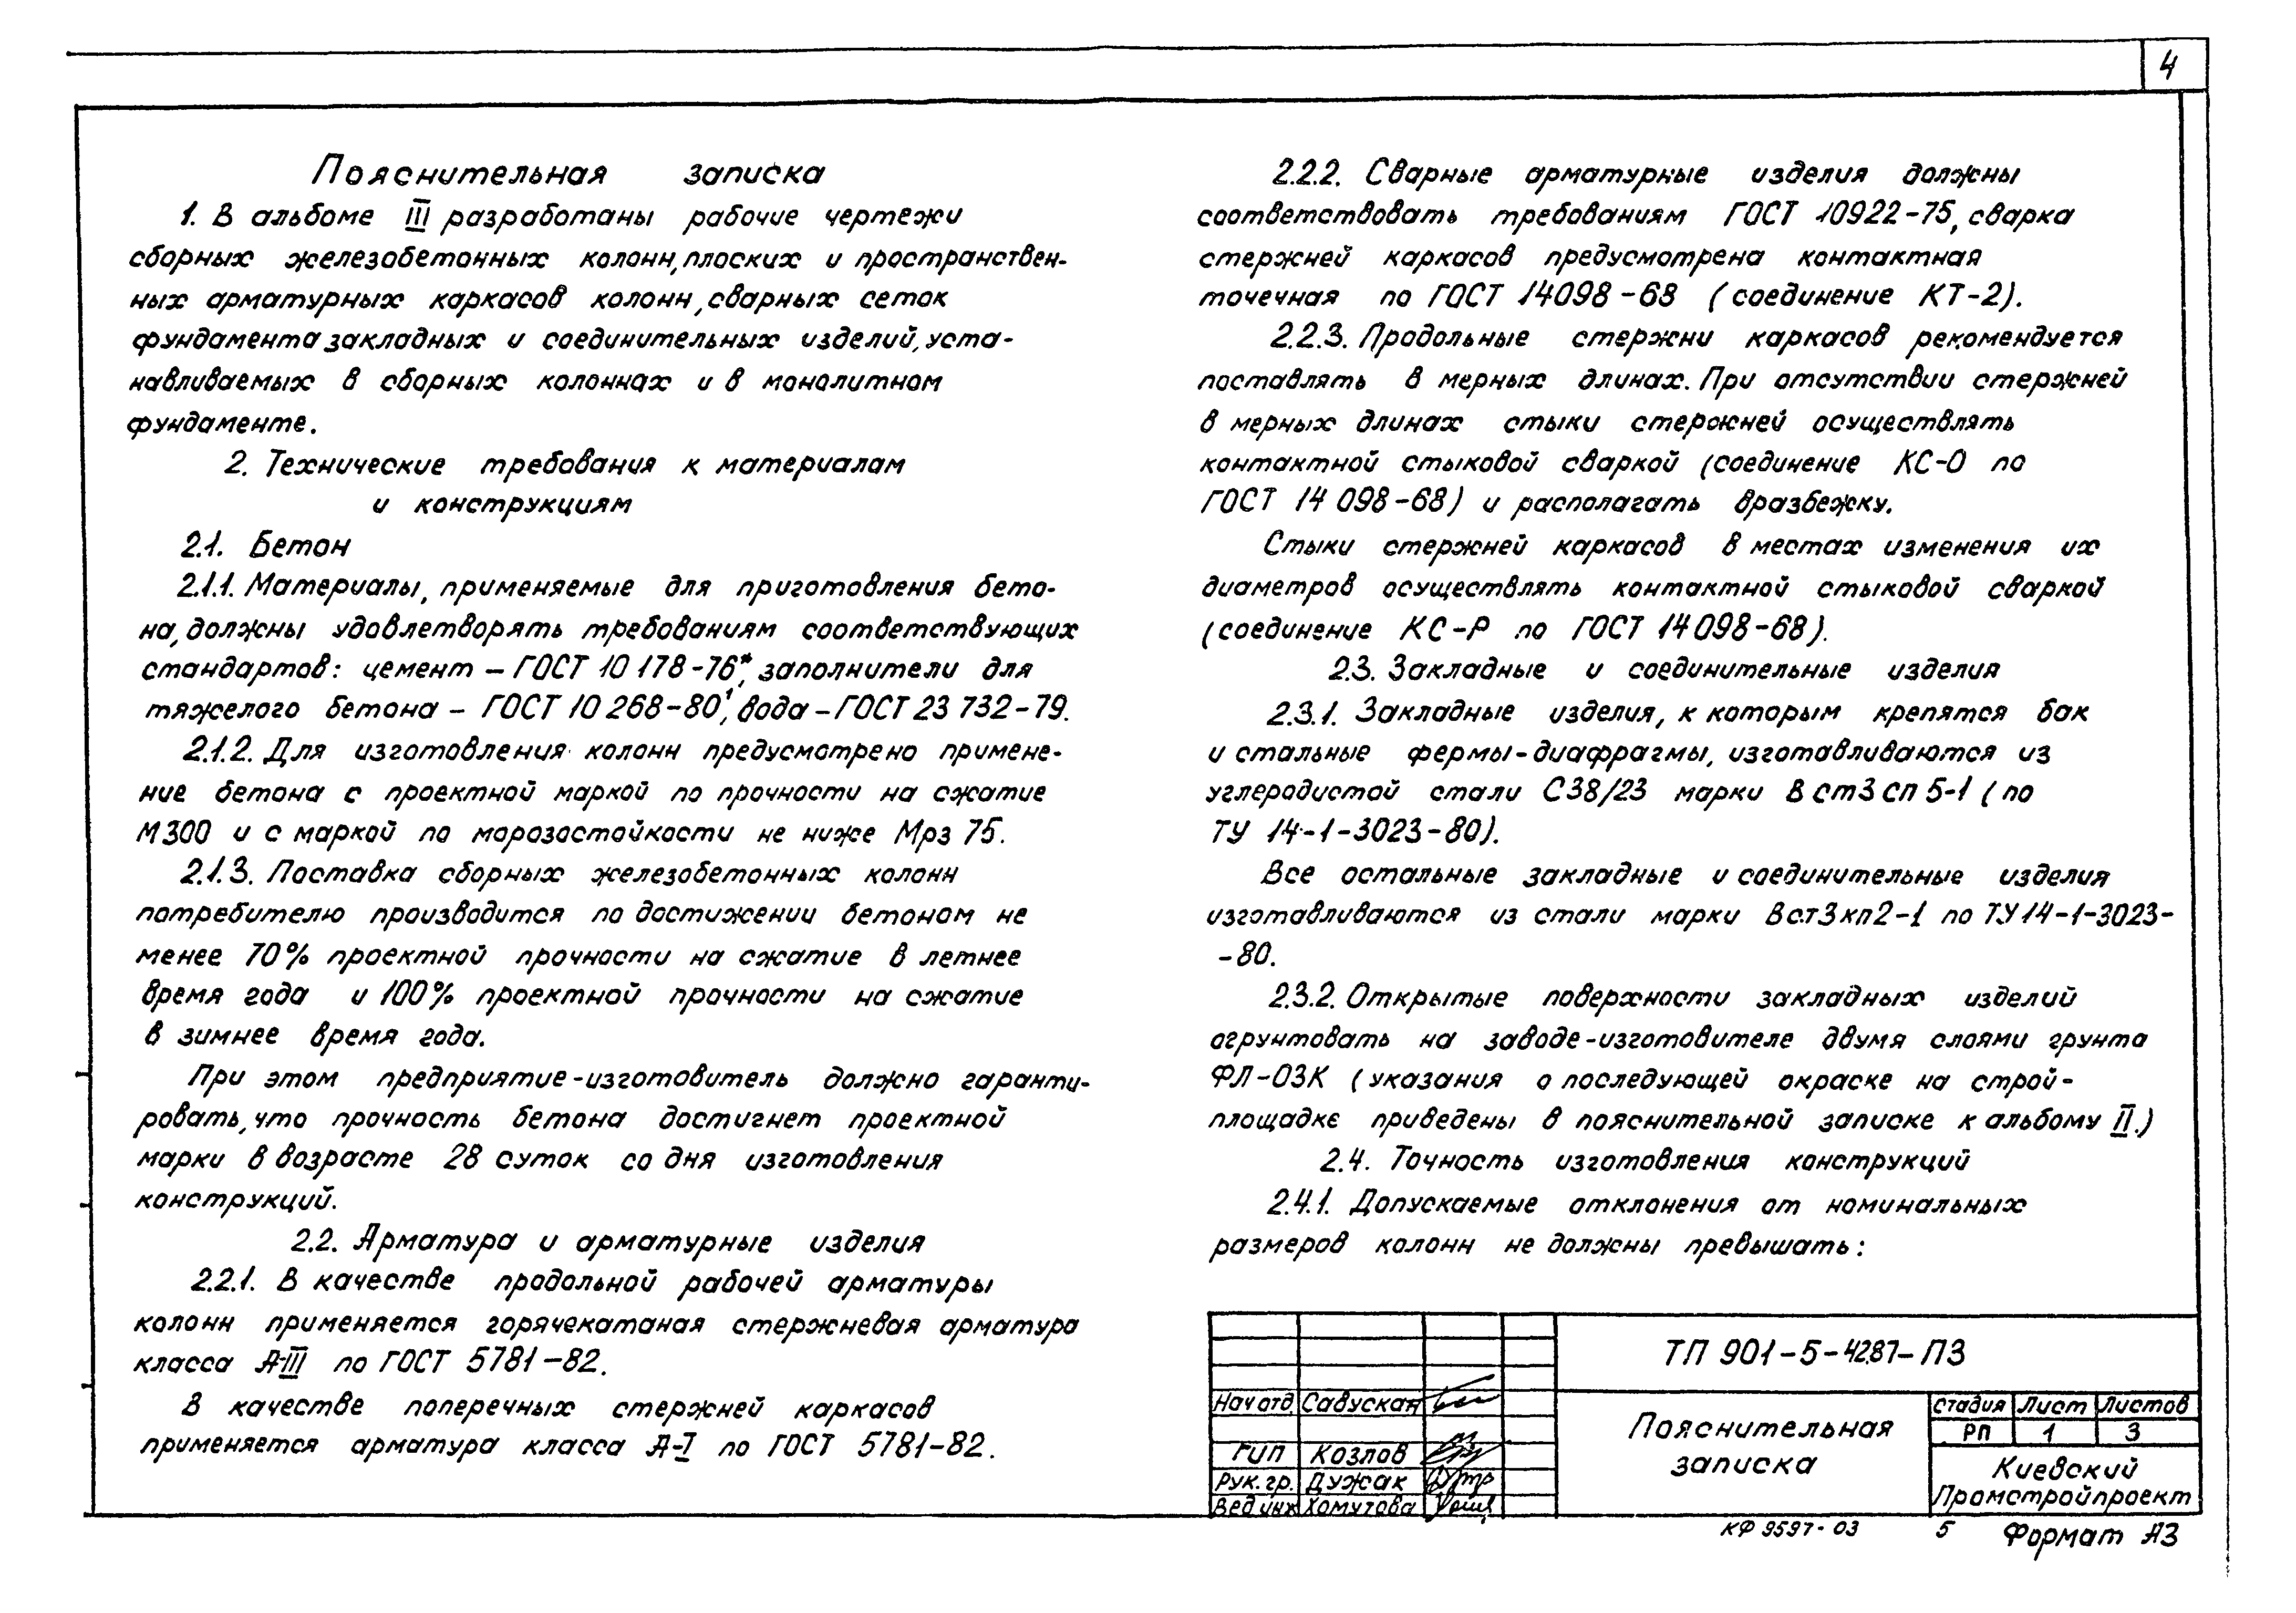 4
Пояснительная записка
1. В альбоме III разработаны рабочие чертежи
сборных железобетонных колонн, плоских и пространствен-
ных арматурных каркасов колонн, сварных сеток
фундамента закладных и соединительных изделий, уста-
навливаемых в сборных колоннах и в монолитном
фундаменте.
2. Технические требования к материалам
и конструкциям
2.1. Бетон
2.1.1. Материалы, применяемые для приготовления бето-
на, должны удовлетворять требованиям соответствующих
стандартов: цемент – ГОСТ 10 178-76*, заполнители для
тяжелого бетона – ГОСТ 10 268-80', вода – ГОСТ 23 732-79.
2.1.2. Для изготовления колонн предусмотрено примене-
ние бетона с проектной маркой по прочности на сжатие
М300 и с маркой по морозостойкости не ниже Мрз 75.
2.1.3. Поставка сборных железобетонных колонн
потребителю производится по достижении бетоном не
менее 70% проектной прочности на сжатие в летнее
время года и 100% проектной прочности на сжатие
в зимнее время года.
При этом предприятие-изготовитель должно гаранти-
ровать, что прочность бетона достигнет проектной
марки в возрасте 28 суток со дня изготовления
конструкций.
2.2. Арматура и арматурные изделия
2.2.1. В качестве продольной рабочей арматуры
колонн применяется горячекатаная стержневая арматура
класса А-III по ГОСТ 5781-82.
В качестве поперечных стержней каркасов
применяется арматура класса А-I по ГОСТ 5781-82.
2.2.2. Сварные арматурные изделия должны
соответствовать требованиям ГОСТ 10922-75, сварка
стержней каркасов предусмотрена контактная
точечная по ГОСТ 14098-68 (соединение КТ-2).
2.2.3. Продольные стержни каркасов рекомендуется
поставлять в мерных длинах. При отсутствии стержней
в мерных длинах стыки стержней осуществлять
контактной стыковой сваркой (соединение КС-О по
ГОСТ 14 098-68) и располагать вразбежку.
Стыки стержней каркасов в местах изменения их
диаметров осуществлять контактной стыковой сваркой
(соединение КС-Р по ГОСТ 14 098-68).
2.3. Закладные и соединительные изделия
2.3.1. Закладные изделия, к которым крепятся бак
и стальные фермы-диафрагмы, изготавливаются из
углеродистой стали С38/23 марки В ст3 сп 5-1 (по
ТУ 14-1-3023-80).
Все остальные закладные и соединительные изделия
изготавливаются из стали марки Вст3кп2-1 по ТУ14-1-3023-
-80.
2.3.2. Открытые поверхности закладных изделий
огрунтовать на заводе-изготовителе двумя слоями грунта
ФЛ-03К (указания о последующей окраске на строй-
площадке приведены в пояснительной записке к альбому II.)
2.4. Точность изготовления конструкций
2.4.1. Допускаемые отклонения от номинальных
размеров колонн не должны превышать:
ТП 901-5-42.87-ПЗ
Нач отд Савускан
ГИП Козлов
Рук. гр. Дужак
Вед инж Хомутова
Пояснительная
записка
Стадия Лист Листов
РП 1 3
Киевский
Промстройпроект
КФ 9597-03 5 Формат А3